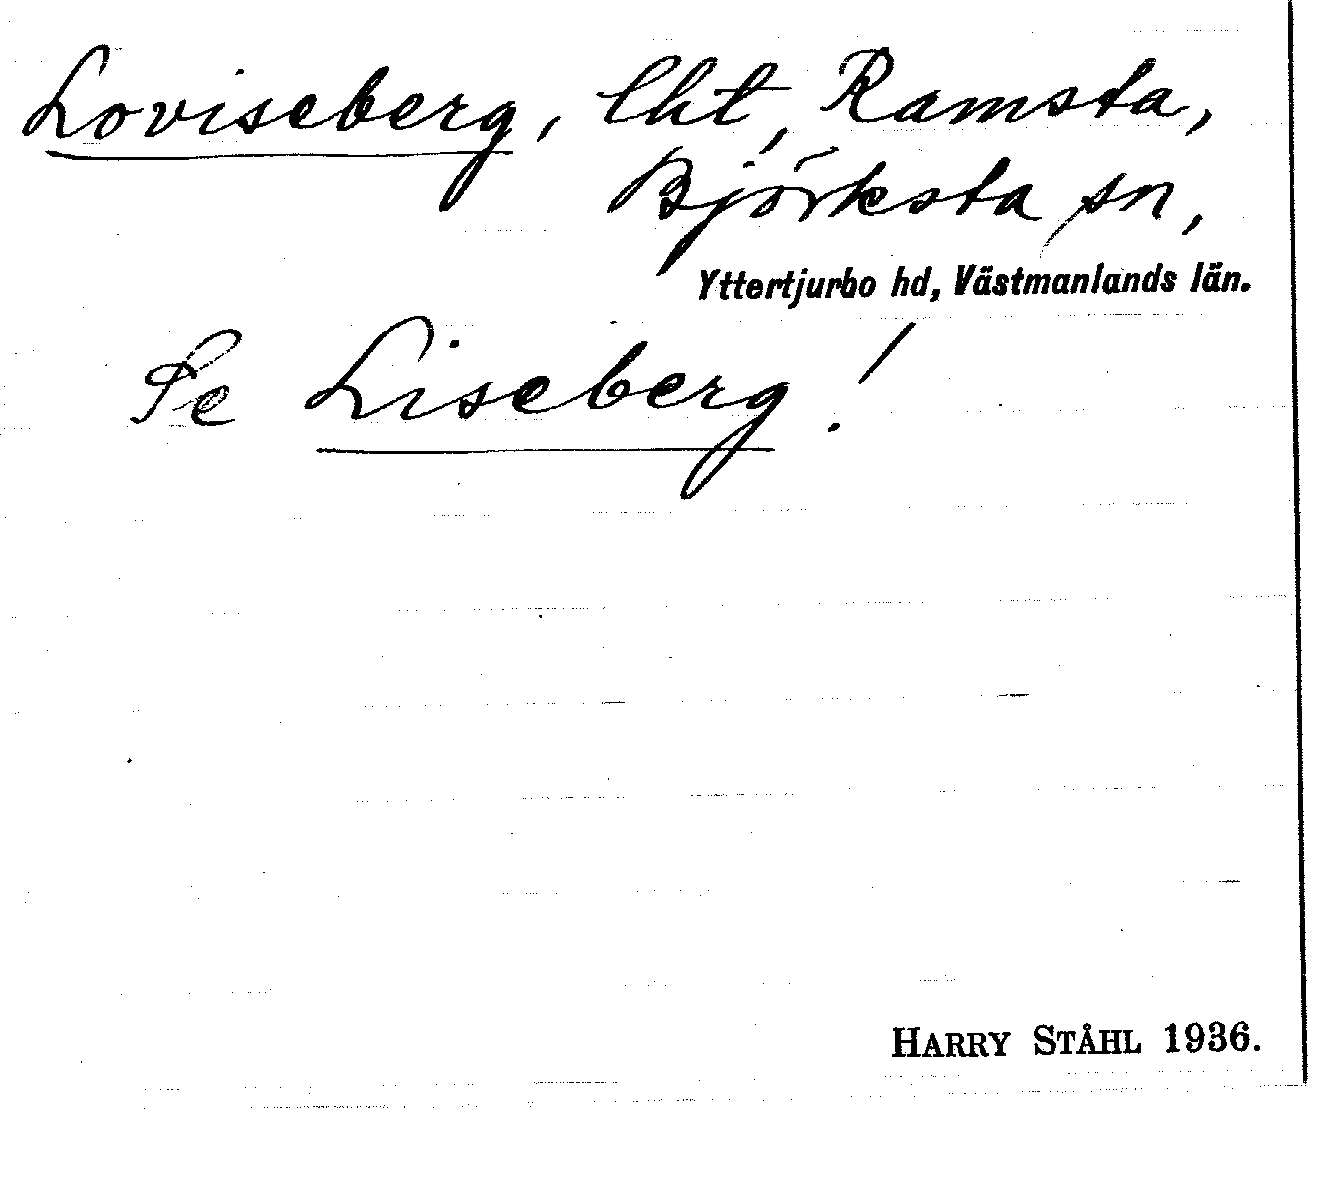 Loviseberg, lht, Ramsta,
Björksta sn,
Yttertjurbo hd, Västmanlands län.
Se Liseberg!
HARRY STÅHL 1936.